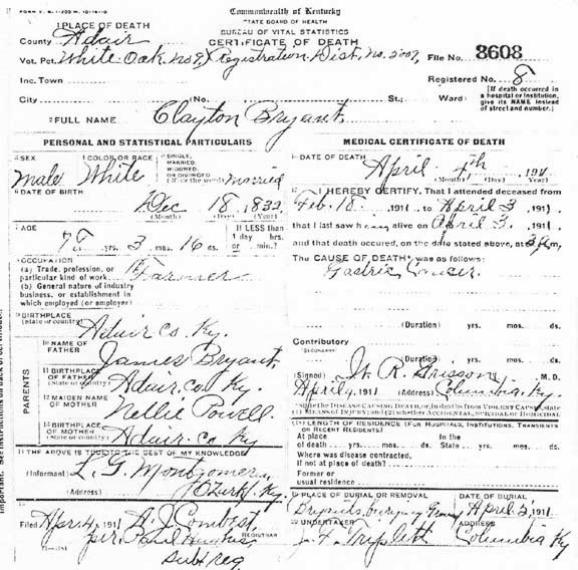 Commonwealth of Kentucky
STATE BOARD OF HEALTH
BUREAU OF VITAL STATISTICS
CERTIFICATE OF DEATH
1 PLACE OF DEATH
County Adair
Vot. Pct. White Oak No 9 Registration Dist. No. File No. 8608
Inc. Town Registered No. 8
City (No. St.: Ward) [If death occurred in a hospital or institution, give its NAME instead of street and number.]
FULL NAME Clayton Bryant
PERSONAL AND STATISTICAL PARTICULARS
SEX Male
COLOR OR RACE White
SINGLE, MARRIED, WIDOWED, OR DIVORCED (Write the word) Married
DATE OF BIRTH
Dec 18, 1832
(Month) (Day) (Year)
AGE
78 yrs. 3 mos. 16 ds.
If LESS than 1 day, hrs. or min.?
OCCUPATION
(a) Trade, profession, or particular kind of work Farmer
(b) General nature of industry business, or establishment in which employed (or employer)
BIRTHPLACE
(State or country) Adair Co. Ky.
PARENTS
10 NAME OF FATHER James Bryant
11 BIRTHPLACE OF FATHER (State or country) Adair. co Ky.
12 MAIDEN NAME OF MOTHER Nellie Powell
13 BIRTHPLACE OF MOTHER Adair. co Ky
THE ABOVE IS TRUE TO THE BEST OF MY KNOWLEDGE
(Informant) L. G. Montgomery
(Address) Ozark, Ky.
Filed Apr. 4, 1911 A. J. Combest
REGISTRAR
per. Paul Hughes
Sub Reg
MEDICAL CERTIFICATE OF DEATH
DATE OF DEATH
April 4th, 191
(Month) (Day) (Year)
I HEREBY CERTIFY, That I attended deceased from
Feb. 18, 1911, to April 3, 1911,
that I last saw h alive on April 3, 1911,
and that death occured, on the date stated above, at 3 m,
The CAUSE OF DEATH was as follows:
Gastric Cancer.
(Duration) yrs. mos. ds.
Contributory
(Duration) yrs. mos. ds.
(Signed) W. R. Grissom, M. D.
April 4, 1911 (Address) Columbia, Ky.
LENGTH OF RESIDENCE (FOR HOSPITALS, INSTITUTIONS, TRANSIENTS OR RECENT RESIDENTS)
At place of death yrs. mos. ds. In the State yrs. mos. ds.
Where was disease contracted, if not at place of death?
Former or usual residence
PLACE OF BURIAL OR REMOVAL
Bryants
DATE OF BURIAL
April 1911
UNDERTAKER
J. F. Triplett
ADDRESS
Columbia Ky